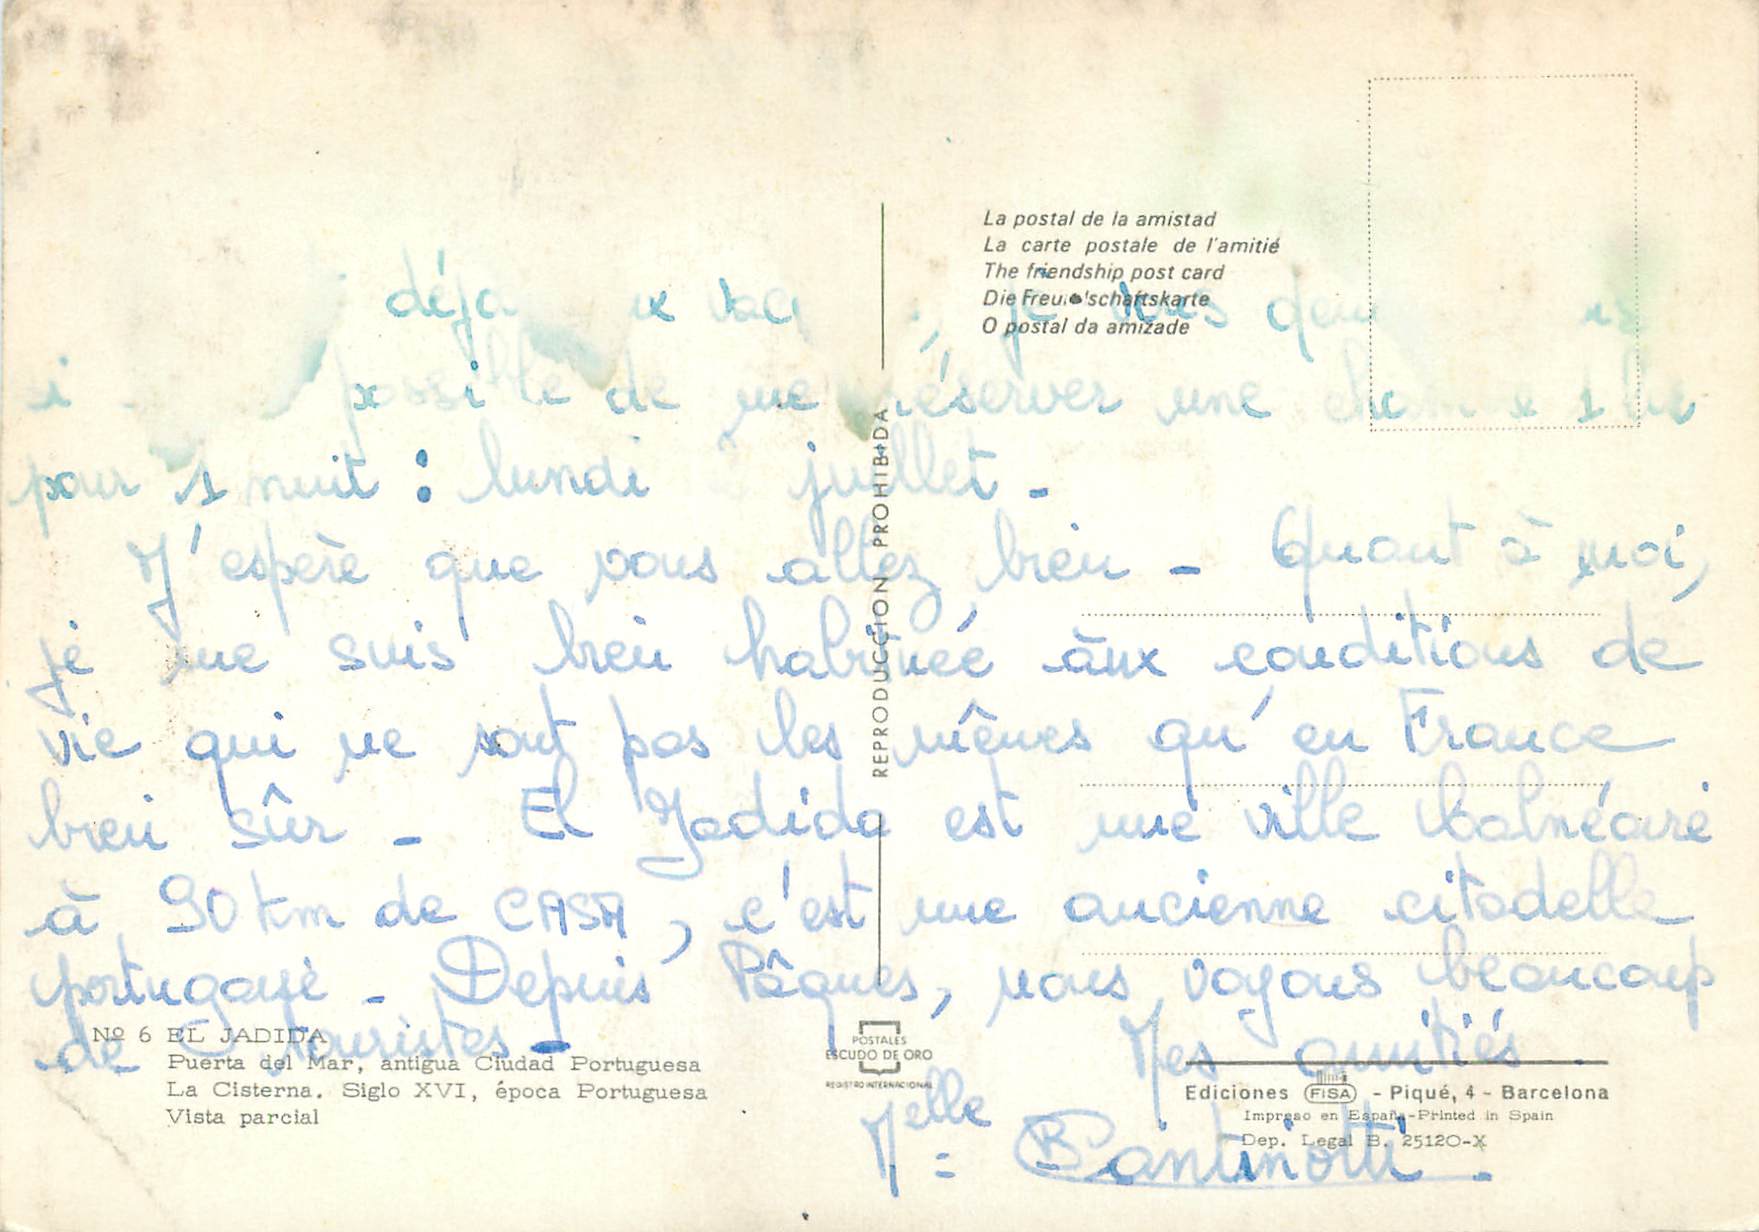 La postal de la amistad
La carte postale de l'amitié
The friendship post card
Die Freundschaftskarte
O postal da amizade
déjà vac , je vous
si possible de me réserver une
pour 1 nuit : lundi juillet -
J'espère que vous allez bien - Quant à moi,
je me suis bien habituée aux conditions de
vie qui ne sont pas les mêmes qu'en France
bien sûr - El Jadida est une ville balnéaire
à 90 km de CASA, c'est une ancienne citadelle
portugaise - Depuis Pâques, nous voyons beaucoup
de touristes -
Mes amitiés .
Melle = B Santinotti .
REPRODUCCION PROHIBIDA
Nº 6 EL JADIDA
Puerta del Mar, antigua Ciudad Portuguesa
La Cisterna. Siglo XVI, época Portuguesa
Vista parcial
POSTALES
ESCUDO DE ORO
REGISTRO INTERNACIONAL
Ediciones FISA - Piqué, 4 - Barcelona
Impreso en España-Printed in Spain
Dep. Legal B. 25120-X